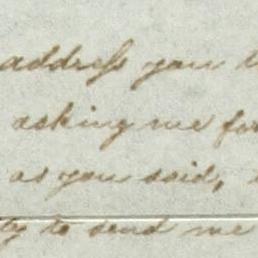 address you
asking me for
as you said,
to send me